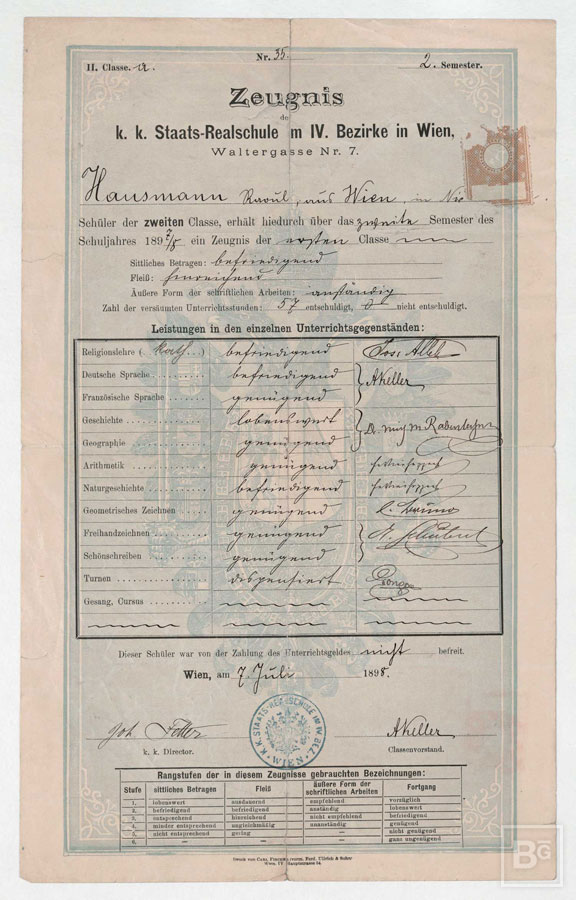 Nr. 35.
II. Classe. a. 2. Semester.
Zeugnis
de
k. k. Staats-Realschule im IV. Bezirke in Wien,
Waltergasse Nr. 7.
Hausmann Raoul, aus Wien, in
Schüler der zweiten Classe, erhält hiedurch über das zweite Semester des
Schuljahres 1897/8 ein Zeugnis der ersten Classe
Sittliches Betragen: befriedigend
Fleiß: hinreichend
Äußere Form der schriftlichen Arbeiten: anständig
Zahl der versäumten Unterrichtsstunden: 57 entschuldigt, 0 nicht entschuldigt.
Leistungen in den einzelnen Unterrichtsgegenständen:
Religionslehre (kath...) befriedigend
Deutsche Sprache befriedigend AKeller
Französische Sprache genügend
Geschichte lobenswert
Geographie genügend
Arithmetik genügend
Naturgeschichte befriedigend
Geometrisches Zeichnen genügend
Freihandzeichnen genügend
Schönschreiben genügend
Turnen dispensiert
Gesang, Cursus
Dieser Schüler war von der Zahlung des Unterrichtsgeldes nicht befreit.
Wien, am 7. Juli 1898.
Joh. AKeller
k. k. Director. Classenvorstand.
K. K. STAATS-REALSCHULE IM IV. BEZ. WIEN
Rangstufen der in diesem Zeugnisse gebrauchten Bezeichnungen:
Stufe sittliches Betragen Fleiß äußere Form der schriftlichen Arbeiten Fortgang
1. lobenswert ausdauernd empfehlend vorzüglich
2. befriedigend befriedigend anständig lobenswert
3. entsprechend hinreichend nicht empfehlend befriedigend
4. minder entsprechend ungleichmäßig unanständig genügend
5. nicht entsprechend gering — nicht genügend
6. — — — ganz ungenügend
Wien, IV. Hauptstrasse
BG